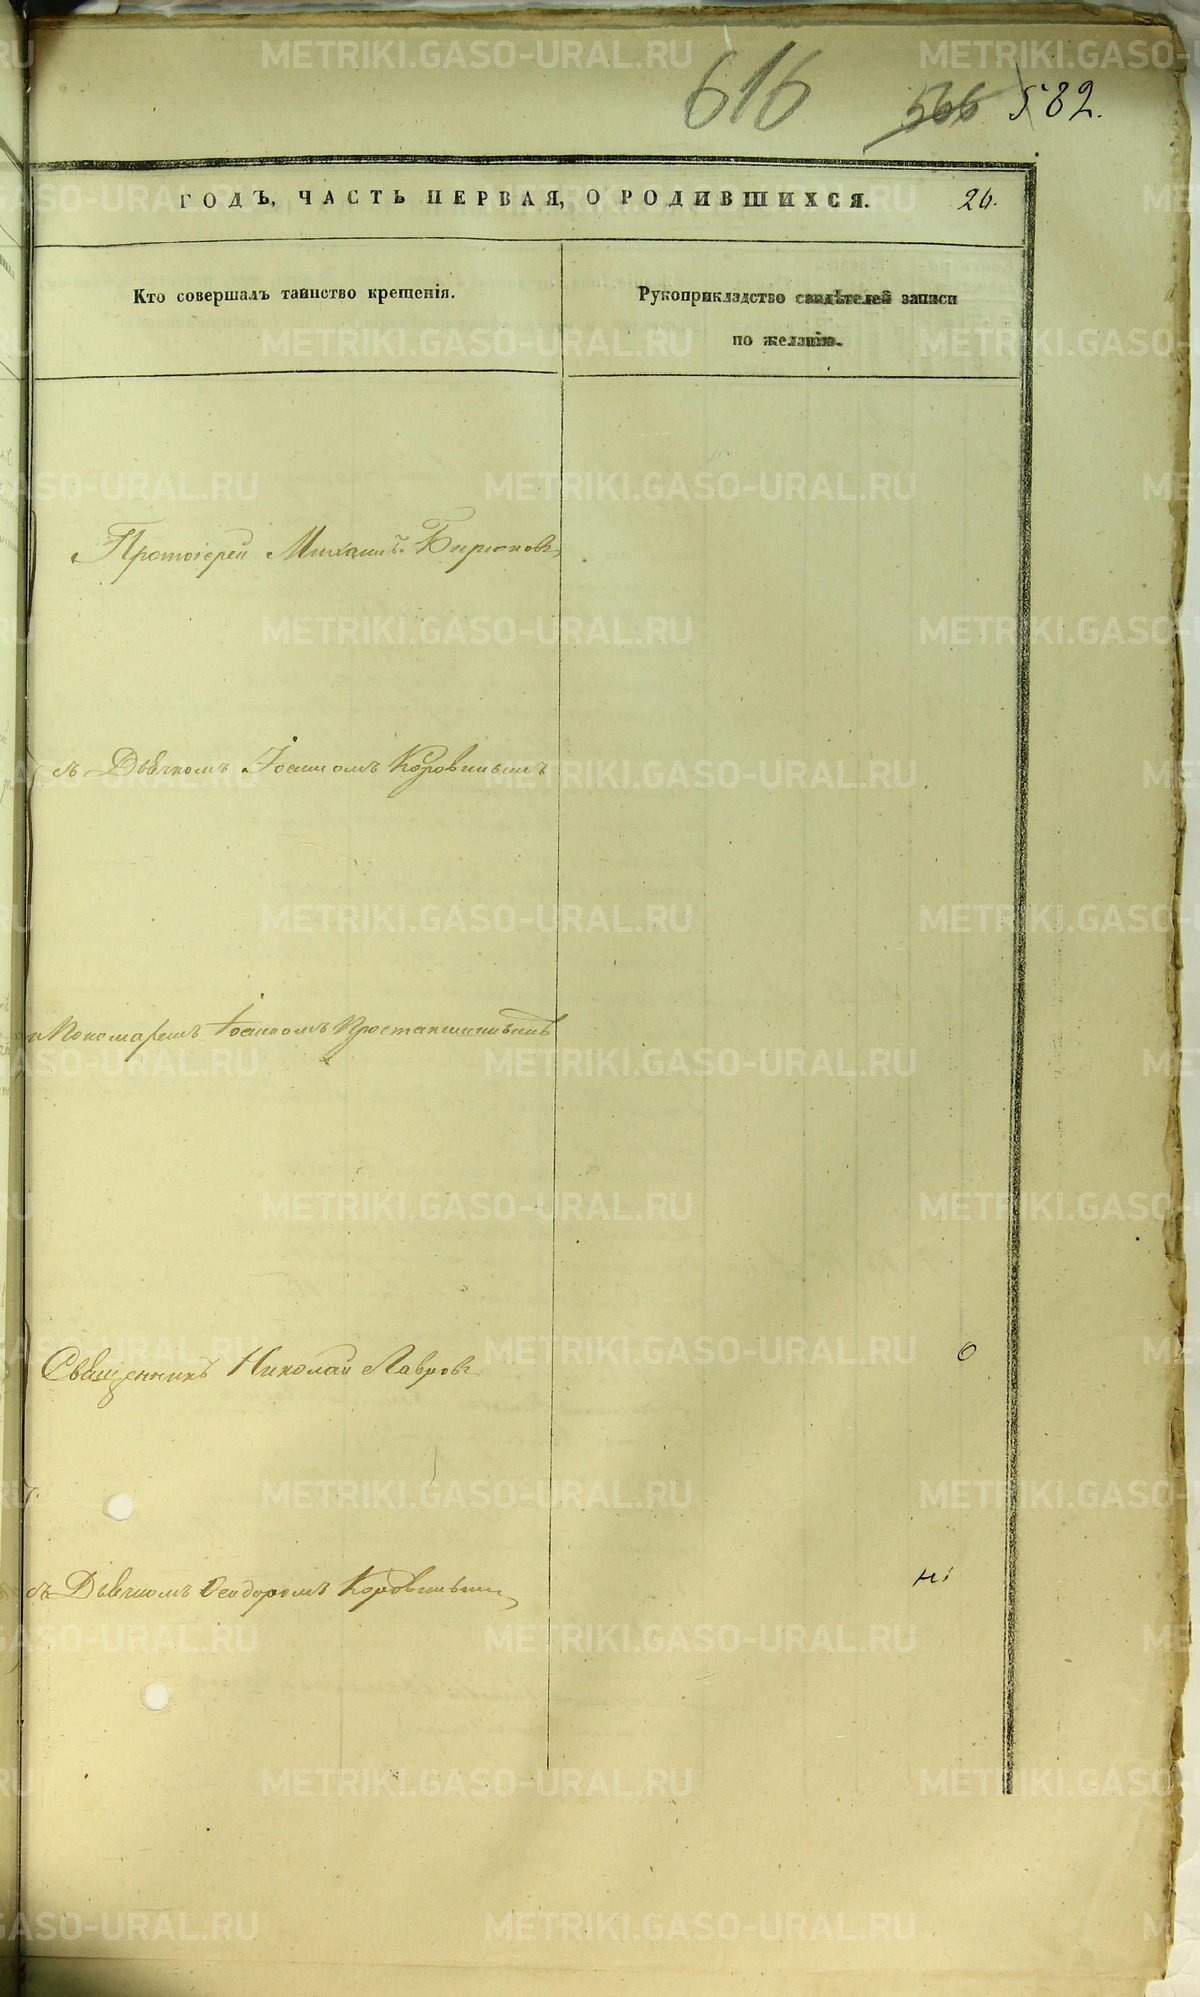 616 566 582.
ГОДЪ, ЧАСТЬ ПЕРВАЯ, О РОДИВШИХСЯ. 26.
Кто совершалъ таинство крещенія.
Рукоприкладство свидѣтелей записи
по желанію.
Протоіерей Михаилъ Бирюковъ
съ Дьячкомъ Іоанномъ Коровинымъ
и Пономаремъ Іоанномъ
Священникъ Николай Лавровъ
О
съ Дьячкомъ Ѳеодоромъ Коровинымъ
METRIKI.GASO-URAL.RU